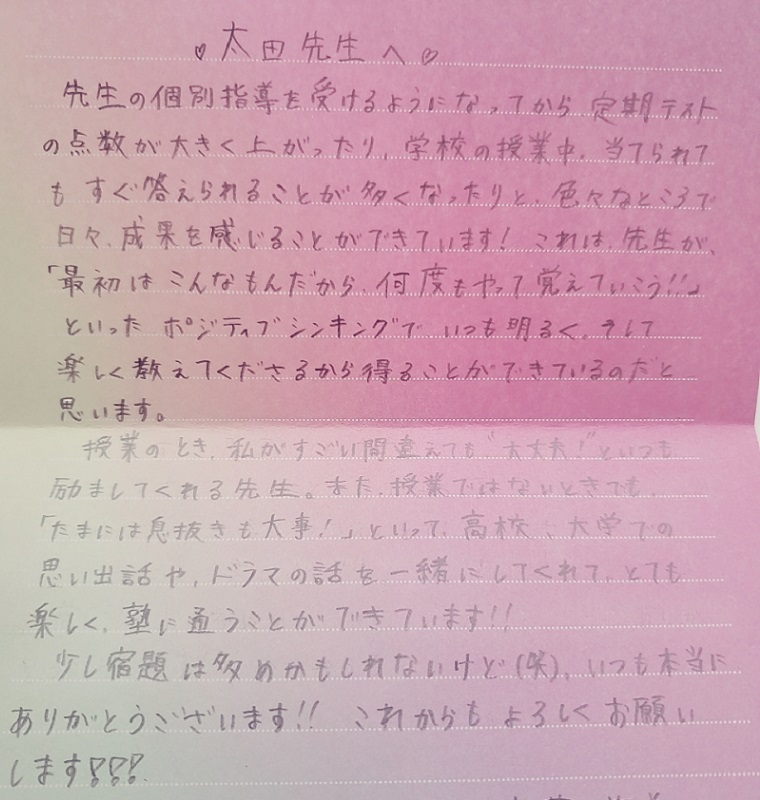 ♡太田先生へ♡
先生の個別指導を受けるようになってから 定期テスト
の点数が大きく上がったり、学校の授業中、当てられて
もすぐ答えられることが多くなったりと、色々なところで
日々、成果を感じることができています! これは、先生が、
「最初はこんなもんだから、何度もやって覚えていこう!!」
といったポジティブシンキングで いつも明るく、そして
楽しく教えてくださるから得ることができているのだと
思います。
授業のとき、私がすごい間違えても"大丈夫!"といつも
励ましてくれる先生。また、授業ではないときでも、
「たまには息抜きも大事!」といって、高校、大学での
思い出話や、ドラマの話を一緒にしてくれて、とても
楽しく、塾に通うことができています!!
少し宿題は多めかもしれないけど(笑)、いつも本当に
ありがとうございます!! これからもよろしくお願い
します!!!